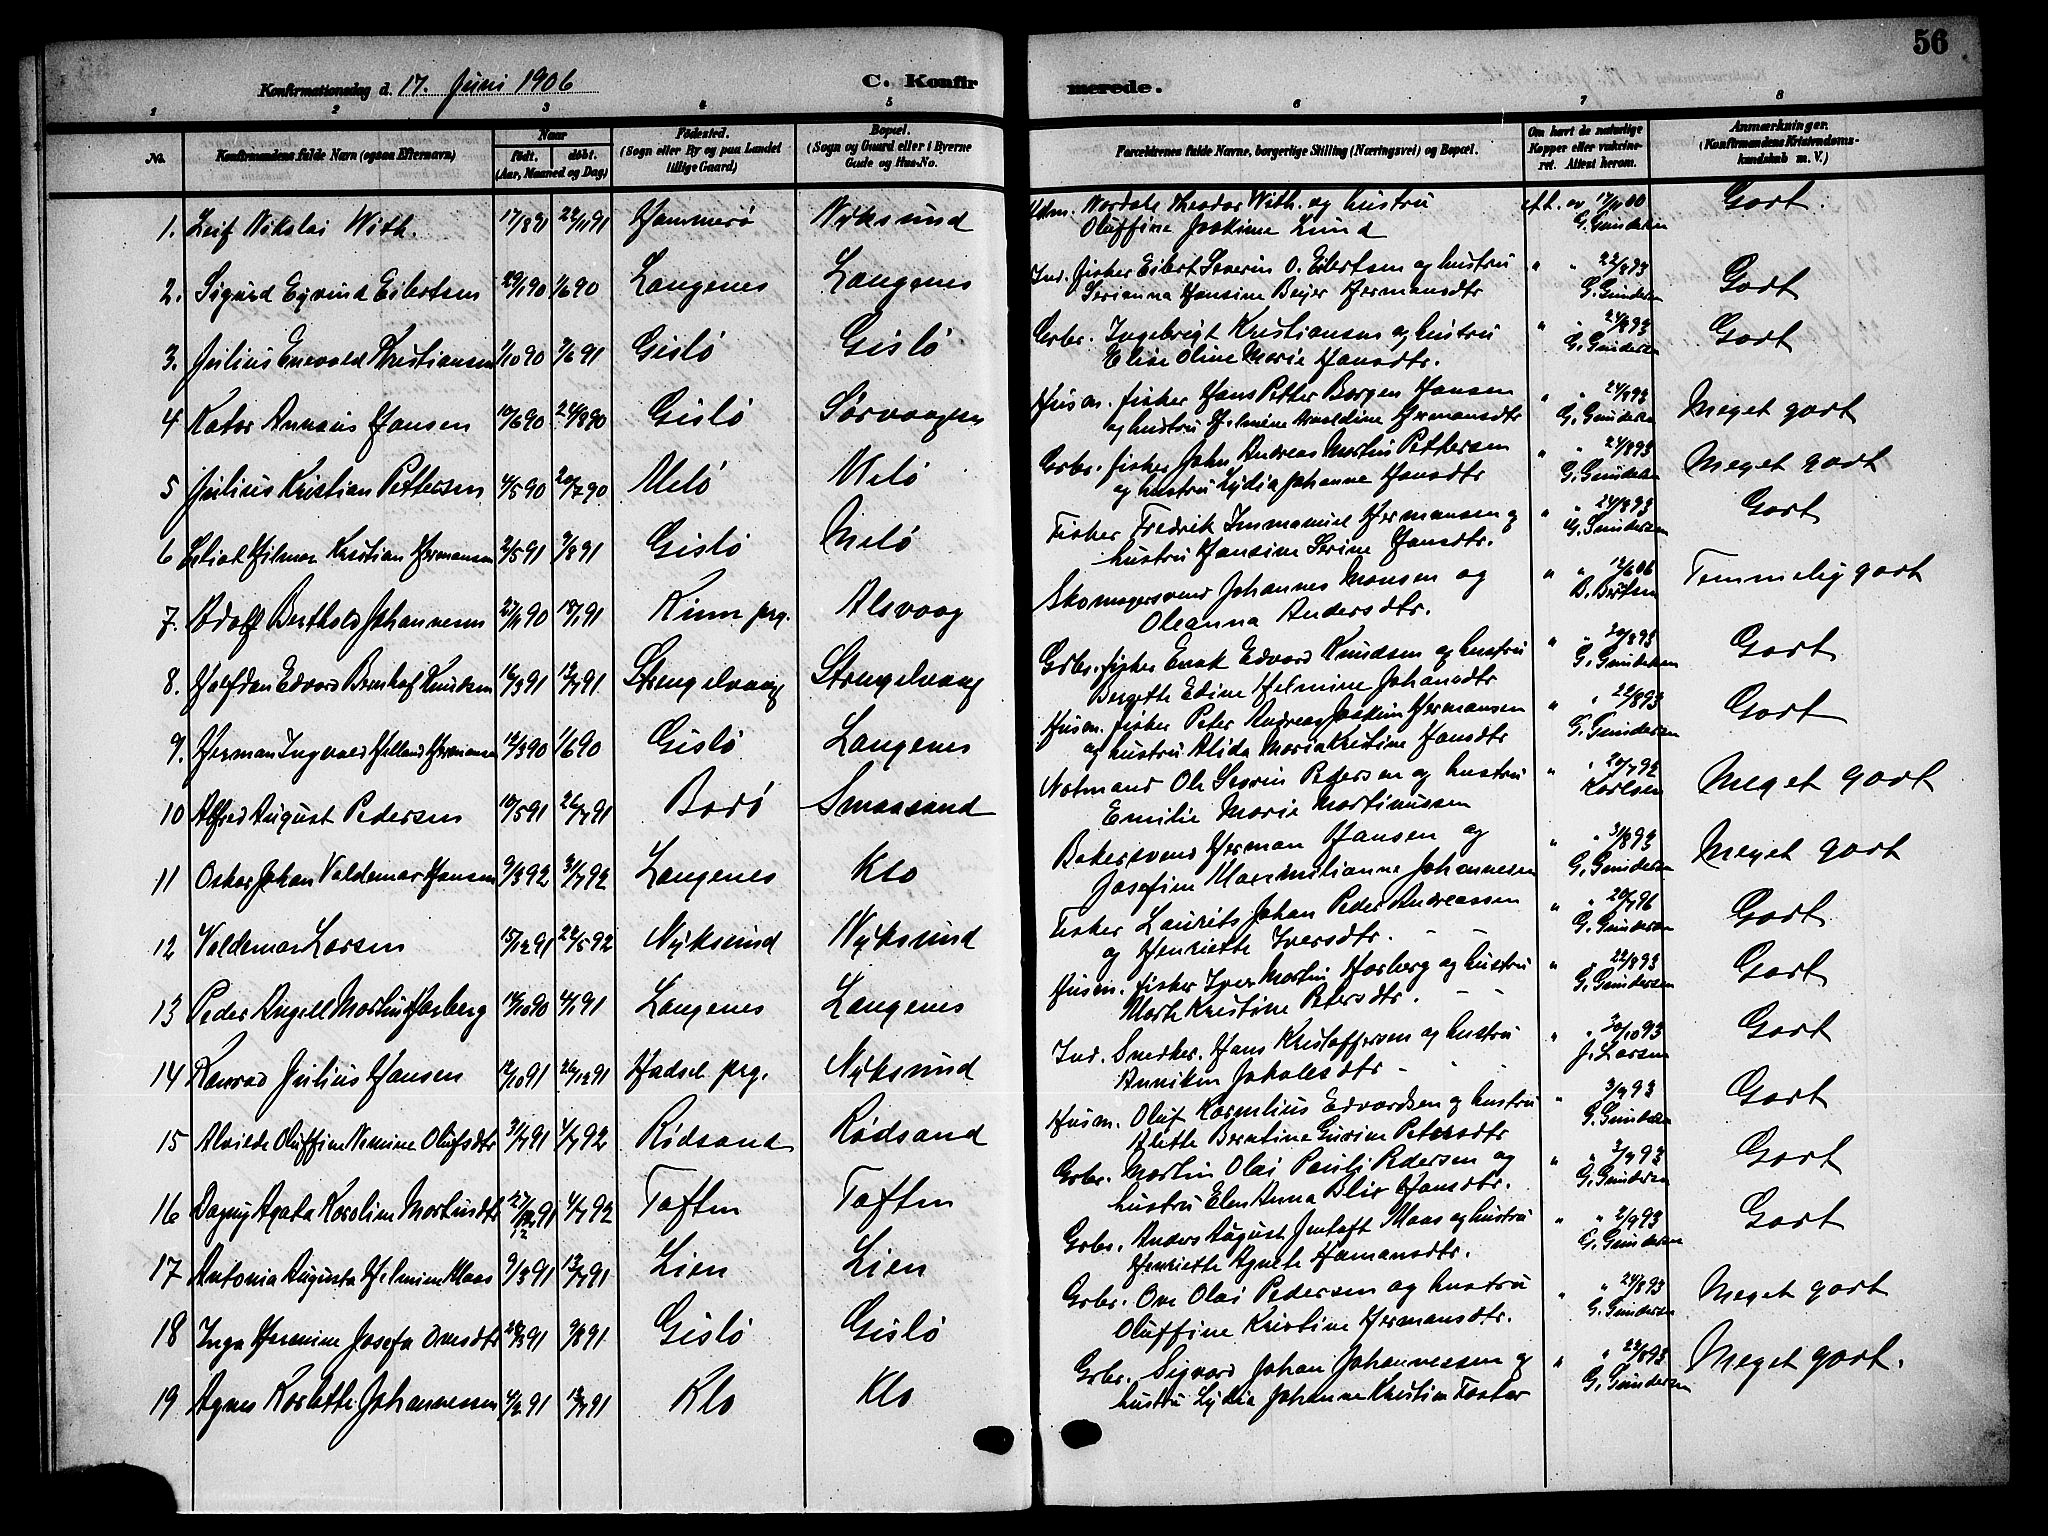 56
Konfirmationsdag d. 17. Juni 1906 C. Konfirmerede.
1 2 3 4 5 6 7 8
No. Konfirmandens fulde Navn (ogsaa Efternavn) Naar født. døbt. (Aar, Maaned og Dag) Fødested. (Sogn eller By og paa Landet tillige Gaard) Bopæl. (Sogn og Gaard eller i Byerne Gade og Hus-No. Forældrenes fulde Navne, borgerlige Stilling (Næringsvei) og Bopæl. Om havt de naturlige Kopper eller vakcineret. Attest herom. Anmærkninger. (Konfirmandens Kristendomskundskab m. V.)
1. Leif Nikolai With. 17/8 91 22/11 91 Hammerö Nyksund Nordale Theodor With. og hustru Oluffine Joakime Lund G. Gundersen Godt.
2. Sigurd Eyvind Eilertsen 29/1 90 1/6 90 Langenes Langenes Ind. fisker Eilert Severin O. Eilertsen og hustru Serianna Hansine Beyer Hermansdtr " " 22/8 93 G. Gundersen Godt
3. Julius Enevold Kristiansen 7/10 90 7/6 91 Gislö Gislö Grbr. Ingebrigt Kristiansen og hustru Elise Oline Marie Hansdtr. " " 24/8 93 G. Gundersen Godt
4 Kator Annæus Hansen 10/6 90 24/8 90 Gislö Sørvaagen Husm. fisker Hans Petter Borgen Hansen og hustru Helmine Arneldine Hermansdtr " " 24/8 93 G. Gundersen Meget godt
5 Julius Kristian Pettersen 4/5 90 20/7 90 Melö Melö Grbr. fisker John Andreas Martin Pettersen og hustru Lydia Johanne Hansdtr " " 24/8 93 G. Gundersen Meget godt
6 Hilmar Kristian Hermansen 2/5 91 9/8 91 Gislö Melö Fisker Fredrik Immanuel Hermansen og hustru Hansine Serine Hansdtr. " " 24/8 93 G. Gundersen Godt
7. Adolf Berthold Johannesen 2/11 90 18/1 91 Kinn prg. Alsvaag Skomagersvend Johannes Monsen og Oleanna Andersdtr. " " 12/6 06 B. Temmelig godt
8. Halfdan Edvard Bernhof Knudsen 16/3 91 12/7 91 Strengelvaag Strengelvaag Grbr. fisker Enok Edvard Knudsen og hustru Bergette Edine Helmine Johansdtr " " 30/8 93 G. Gundersen Godt
9. Herman Ingvald Helland Hermansen 12/3 90 1/6 90 Gislö Langenes Husm. fisker Peter Andreas Joakim Hermansen og hustru Alida Maria Kristine Hansdtr " " 22/8 93 G. Gundersen Godt
10 Alfred August Pedersen 10/5 91 26/7 91 Borö Smaasand Notmand Ole Severin Pedersen og hustru Emilie Marie Martinussen " " 20/7 92 Karlsen Meget godt
11 Oskar Johan Valdemar Hansen 9/3 92 3/7 92 Langenes Klo Bakersvend Herman Hansen og Josefine Maximilianne Johannesen " " 31/8 93 G. Gundersen Meget godt
12 Valdemar Larsen 15/12 91 22/5 92 Nyksund Nyksund Fisker Laurits Johan Peder Andreassen og Henriette Iversdtr. " " 20/7 96 G. Gundersen Godt
13 Peder Angell Martin Hasberg 14/10 90 4/1 91 Langenes Langenes Husm. fisker Iver Martin Hasberg og hustru Marte Kristine Petersdtr. " " 22/8 93 G. Gundersen Godt
14 Konrad Julius Hansen 12/10 91 26/12 91 Hadsel prg. Nyksund Ind. Snedker. Hans Kristoffersen og hustru Anniken Jakobsdtr " " 30/10 93 J. Larsen Godt
15 Alvilde Oluffine Nemine Olufsdtr 31/7 91 4/7 92 Rödsand Rödsand Husm. Oluf Kornelius Edvardsen og hustru Alette Berntine Gurine Petersdtr " 3/9 93 G. Gundersen Godt
16 Dagny Agata Karoline Martinsdtr 27/12 91 4/7 92 Toften Toften Grbr. Martin Olai Pauli Pedersen og hustru Elen Anna Blix Hansdtr. " " 3/9 93 G. Gundersen Godt
17 Antonia Augusta Helmine Maas 9/3 91 12/7 91 Lien Lien Grbr. Anders August Jentoft Maas og hustru Henriette Agnete Hermansdtr. " " 2/9 93 G. Gundersen Godt
18 Inga Hermine Josefa Ovesdtr 28/3 91 9/8 91 Gislö Gislö Grbr. Ove Olai Pedersen og hustru Oluffine Kristine Hermansdtr. " " 24/8 93 G. Gundersen Meget godt
19 Agnes Karlotte Johannessen 4/2 91 12/7 91 Klo Klo Grbr. Sigvard Johan Johannessen og hustru Lydia Johanne Kristine Foster " " 23/8 93 G. Gundersen Meget godt.